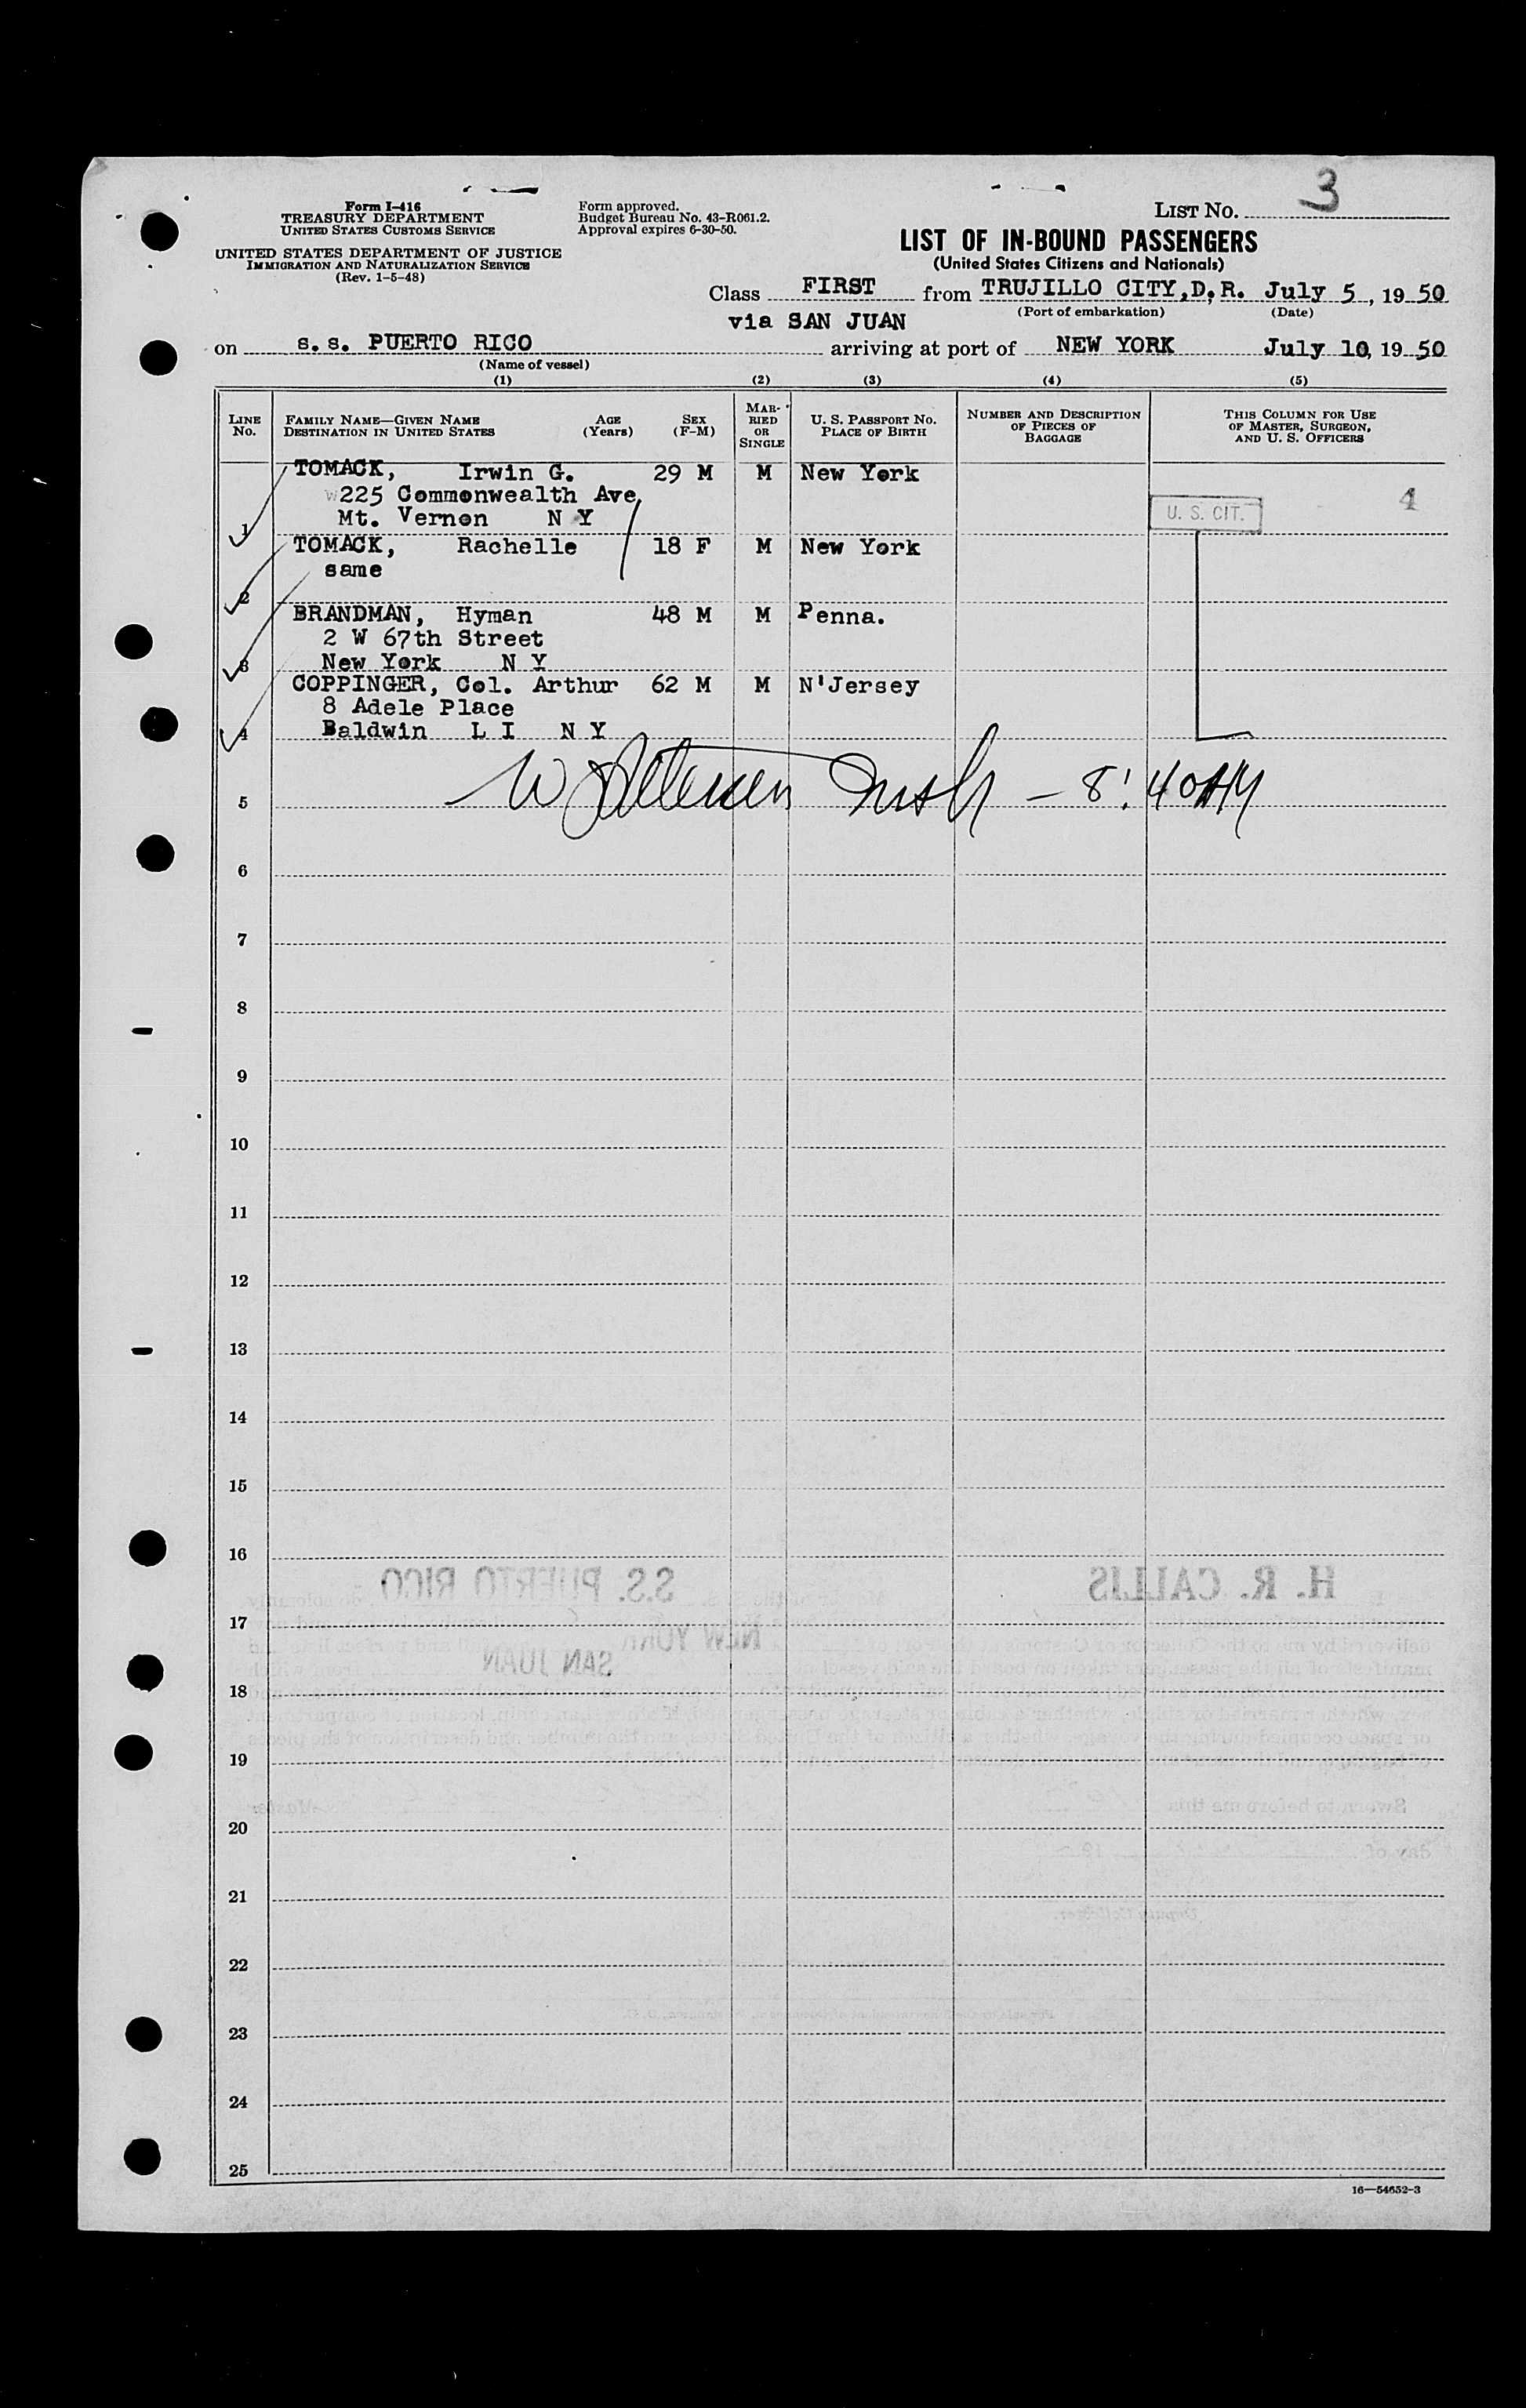 Form I-416
TREASURY DEPARTMENT
UNITED STATES CUSTOMS SERVICE
UNITED STATES DEPARTMENT OF JUSTICE
IMMIGRATION AND NATURALIZATION SERVICE
(Rev. 1-5-48)
Form approved.
Budget Bureau No. 43-R061.2.
Approval expires 6-30-50.
LIST NO. 3
LIST OF IN-BOUND PASSENGERS
(United States Citizens and Nationals)
Class FIRST from TRUJILLO CITY, D, R. July 5, 19 50
(Port of embarkation) (Date)
via SAN JUAN
on s. s. PUERTO RICO arriving at port of NEW YORK July 10, 19 50
(Name of vessel)
(1) (2) (3) (4) (5)
LINE No. FAMILY NAME—GIVEN NAME DESTINATION IN UNITED STATES AGE (Years) SEX (F-M) MARRIED OR SINGLE U. S. PASSPORT NO. PLACE OF BIRTH NUMBER AND DESCRIPTION OF PIECES OF BAGGAGE THIS COLUMN FOR USE OF MASTER, SURGEON, AND U. S. OFFICERS
TOMACK, Irwin G. 29 M M New York
W225 Commonwealth Ave, U. S. CIT. 4
1 Mt. Vernon N Y
TOMACK, Rachelle 18 F M New York
same
2
BRANDMAN, Hyman 48 M M Penna.
2 W 67th Street
3 New York N Y
COPPINGER, Col. Arthur 62 M M N'Jersey
8 Adele Place
4 Baldwin L I N Y
5 8:40 AM
6
7
8
9
10
11
12
13
14
15
16
S.S. PUERTO RICO H. R. CALLIS
17
NEW YORK
SAN JUAN
18
19
20
21
22
23
24
25
16—54652-3